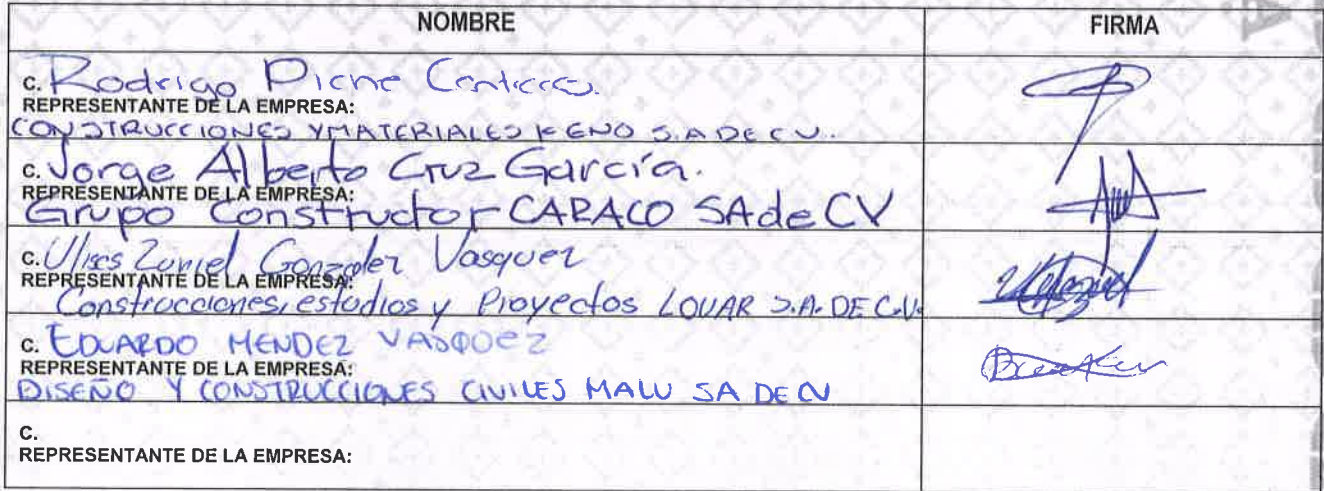 NOMBRE FIRMA
C. Rodrigo
REPRESENTANTE DE LA EMPRESA:
CONSTRUCCIONES Y MATERIALES KENO S.A DE C.V..
C. Jorge Alberto Cruz García.
REPRESENTANTE DE LA EMPRESA:
Grupo Constructor CARACO SA de CV
C. Ulises Zuriel Gonzalez Vasquez
REPRESENTANTE DE LA EMPRESA:
Construcciones, estudios y Proyectos LOUAR S.A. DE C.V.
C. EDUARDO MENDEZ VASQUEZ
REPRESENTANTE DE LA EMPRESA:
DISEÑO Y CONSTRUCCIONES CIVILES MALU SA DE CV
C.
REPRESENTANTE DE LA EMPRESA: